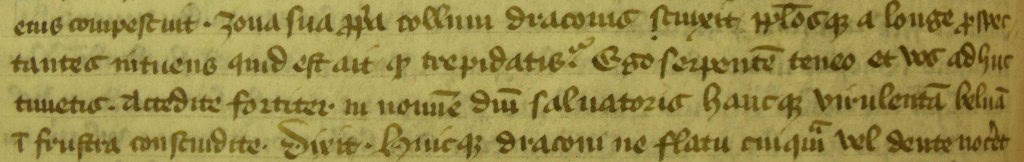 eius compescuit. Zona sua ꝓp̃a collum draconis stinxit pp̃losqꝫ a longe ꝓspec
tantes intuens quid est ait qͥ trepidatis. Ego serpentē teneo et vos adhuc
timetis. Accedite fortiter in noīe dn̄i saluatoris hancqꝫ virulentā beluā
ī frustra conscindite. Dixit. Huicqꝫ draconi ne flatu cuiqᷓ vel dente noc̉et